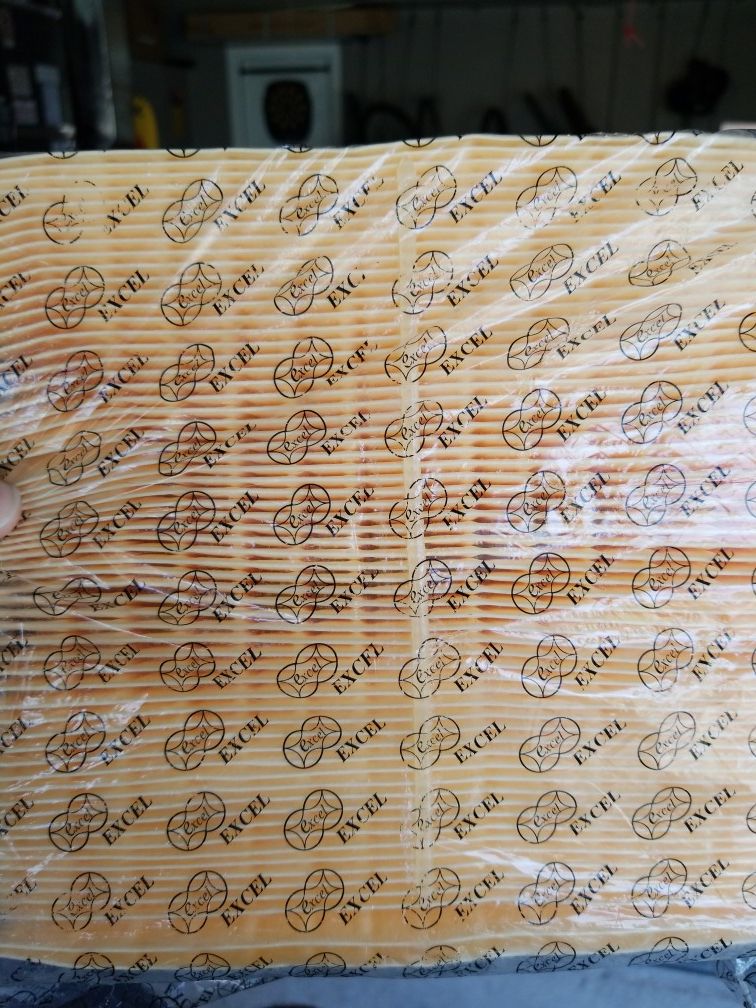 CEL EXCEL Excel EXCEL EXCEL Excel EXCEL Excel EXCEL EXCEL
CEL Excel EXCEL Excel EXCEL Excel EXC Excel EXCEL Excel EXCEL Excel
CEL Excel EXCEL Excel EXCEL Excel EXCEL Excel EXCEL Excel EXCEL Excel EXCEL
CEL Excel EXCEL Excel EXCEL Excel EXCEL Excel EXCEL Excel EXCEL Excel EXCEL
Excel EXCEL Excel EXCEL Excel EXCEL Excel EXCEL Excel EXCEL Excel EXCEL
Excel EXCEL Excel EXCEL Excel EXCEL Excel EXCEL Excel EXCEL Excel EXCEL
CEL Excel EXCEL Excel EXCEL Excel EXCEL Excel EXCEL Excel EXCEL Excel EXCEL
CEL Excel EXCEL Excel EXCEL Excel EXCEL Excel EXCEL Excel EXCEL Excel EXCEL
CEL Excel EXCEL Excel EXCEL Excel EXCEL Excel EXCEL Excel EXCEL Excel EXCEL
Excel EXCEL Excel EXCEL Excel EXCEL Excel EXCEL Excel EXCEL Excel EXCEL
Excel EXCEL Excel EXCEL Excel EXCEL Excel EXCEL Excel EXCEL Excel EXCEL